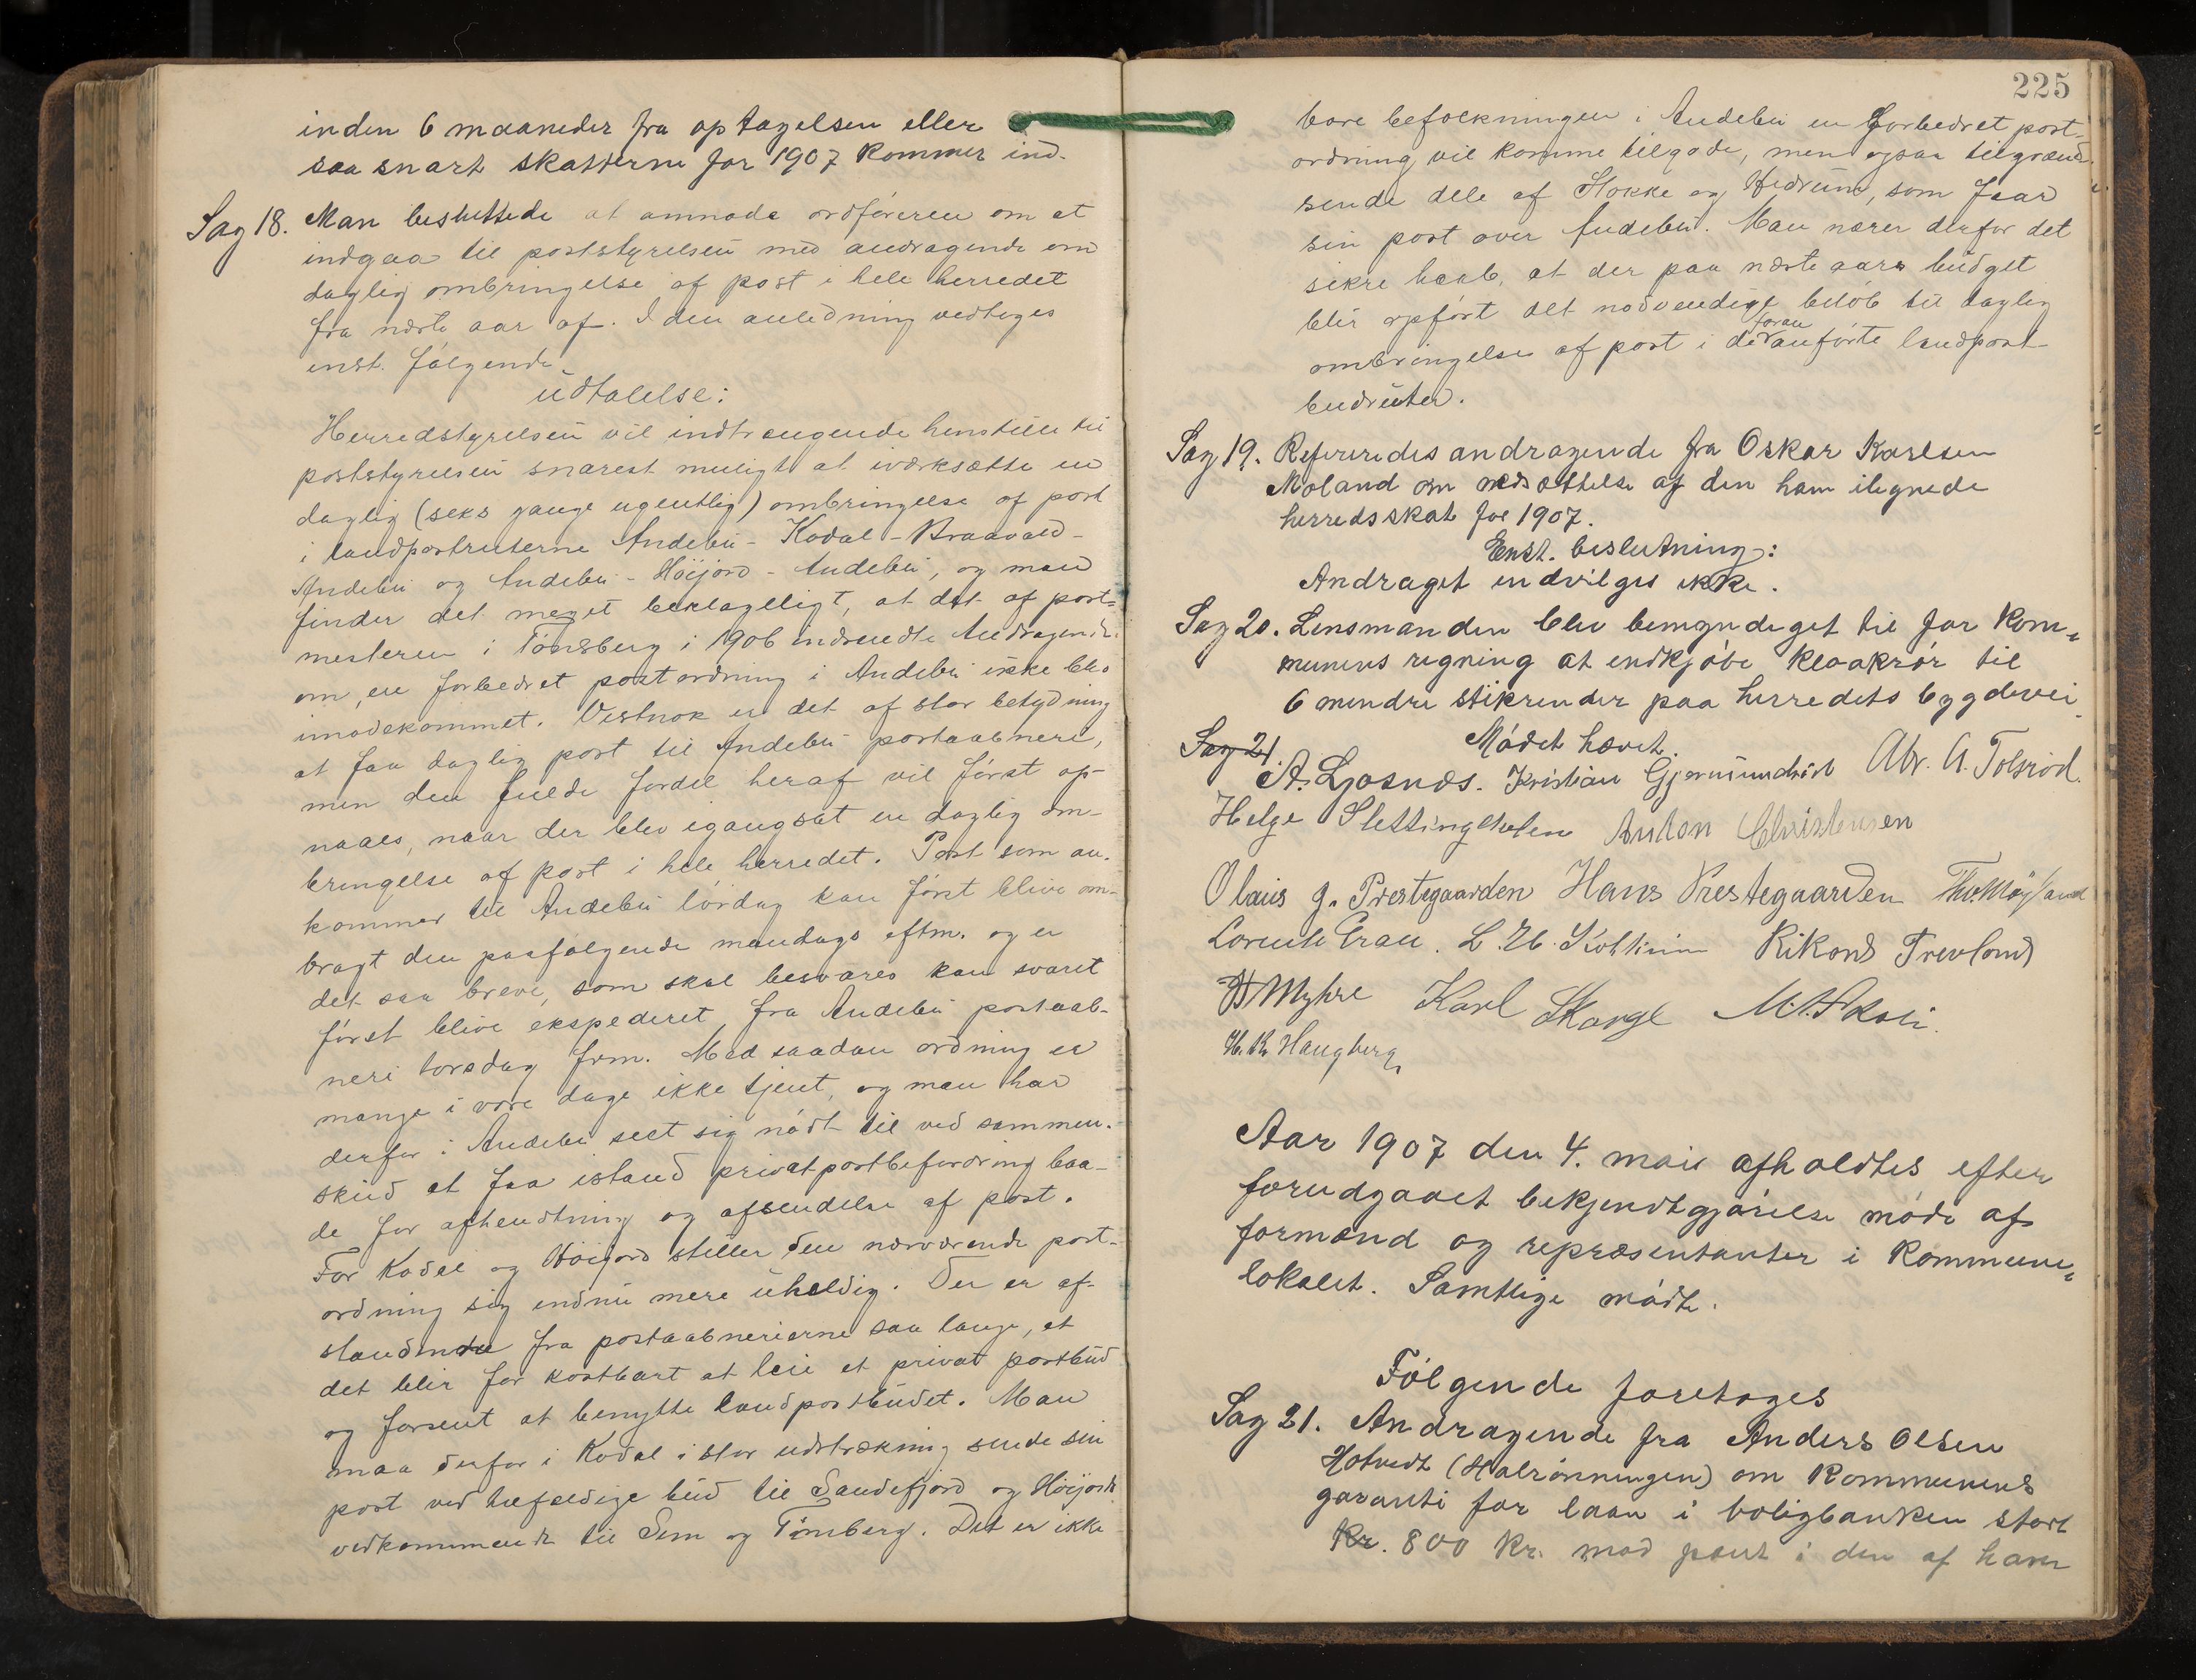 inden 6 maaneder fra optagelsen eller
saa snart skatterne for 1907 kommer ind.
Sag 18. Man besluttede at anmode ordføreren om at
indgaa til poststyrelsen med andragende om
daglig ombringelse af post i hele herredet
fra næste aar af. I den anledning vedtoges
enst. følgende
udtalelse:
Herredstyrelsen vil indtrængende henstille til
poststyrelsen snarest muligt at iværksætte en
daglig (seks gange ugentlig) ombringelse af post
i landpostruterne Andebu - Kodal - Braavold -
Andebu og Andebu - Høijord - Andebu, og man
finder det meget beklageligt, at det af post=
mesteren i Tønsberg i 1906 indsendte Andragende
om, en forbedret postordning i Andebu ikke blev
imødekommet. Vistnok er det af stor betydning
at faa daglig post til Andebu postaabneri,
men den fulde fordel heraf vil først op-
naaes, naar der blev igangsat en daglig om-
bringelse af post i hele herredet. Post som an-
kommer til Andebu lørdag kan først blive om-
bragt den paafølgende mandags eftm. og er
det saa breve, som skal besvares kan svaret
først blive ekspederet fra Andebu postaab-
neri torsdag frm. Med saadan ordning er
mange i vore dage ikke tjent, og man har
derfor i Andebu seet sig nødt til ved sammen-
skud at faa istand privatpostbefordring baa-
de for afhendtning og afsendelse af post.
For Kodal og Høijord stiller den nærværende post-
ordning sig endnu mere uheldig. Der er af-
standene fra postaabnerierne saa lange, at
det blir for kostbart at leie et privat postbud
og forsent at benytte landpostbudet. Man
maa derfor i Kodal i stor udstrækning sende sin
post ved tilfældige bud til Sandefjord og Høijords
vedkommende til Sem og Tønsberg. Det er ikke
225
bare befolkningen i Andebu en forbedret post-
ordning vil komme tilgode, men ogsaa tilgrænd-
sende dele af Stokke og Hedrum, som faar
sin post over Andebu. Man nærer derfor det
sikre haab, at der paa næste aars budget
blir opført det nødvendige beløb til daglig
foran
ombringelse af post i de anførte landpost-
budruter.
Sag 19. Refereredes andragende fra Oskar Karlsen
Moland om nedsættelse af den ham ilignede
herredsskat for 1907.
Enst. beslutning:
Andraget indvilges ikke.
Sag 20. Lensmanden blev bemyndiget til for kom=
munens regning at indkjøbe kloakrør til
6 mindre stikrender paa herredets bygdevei
Sag 21. Mødet hævet.
A. Gjosnæs. Kristian Gjermundrød Abr. A. Tolsrød.
Helge Slettingdalen Anton Christensen
Olaus J. Prestegaarden Hans Prestegaarden Th. Møyland
Lorents Grau. L. Kolkinn Rikard Trevland
Myhre Karl Skorge M. A. Skoli.
H. K. Haugberg
Aar 1907 den 4. mai afholdtes efter
forudgaaet bekjendtgjørelse møde af
formænd og repræsentanter i kommune=
lokalet. Samtlige mødte.
Følgende foretoges
Sag 21. Andragende fra Anders Olsen
Hotvedt (Halrønningen) om kommunens
garanti for laan i boligbanken stort
Kr. 800 kr. mod pant i den af ham